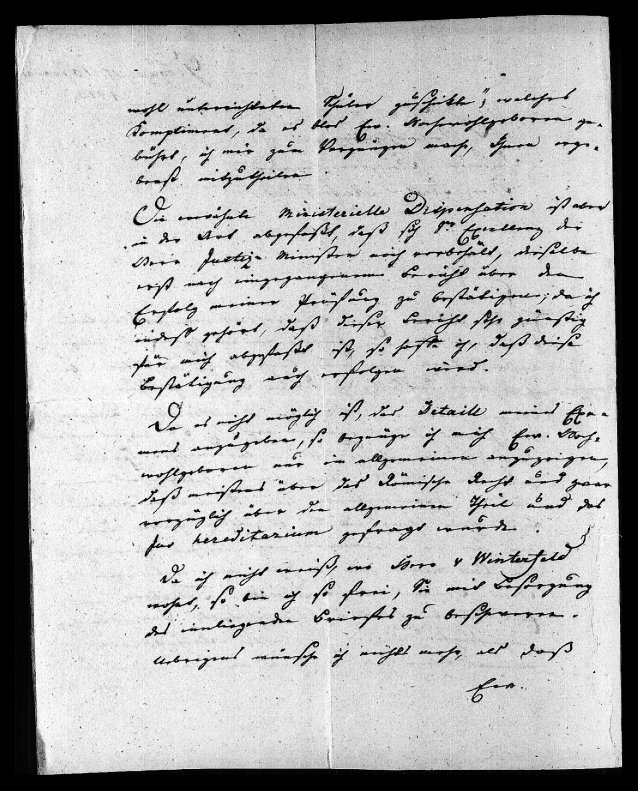 wohl unterrichteten Schüler zuschickte", welches
Kompliment, da es blos Ew. Hochwohlgeboren ge-
bührt, ich mir zum Vergnügen mache, Ihnen erge-
benst mitzutheilen
Die erwähnte Ministerielle Dispensation ist aber
in der Art abgefaßt, daß sich Se Excellenz der
Herr Justiz-Minister noch vorbehält, dieselbe
erst nach eingegangenem Bericht über den
Erfolg meiner Prüfung zu bestätigen; da ich
indeß gehört, daß dieser Bericht sehr günstig
für mich abgefaßt ist, so hoffe ich, daß diese
Bestätigung auch erfolgen wird.
Da es nicht möglich ist, das Detaill meines Exa-
mens anzugeben, so begnüge ich mich Ew. Hoch-
wohlgeboren nur im allgemeinen anzuzeigen,
daß meistens über das Römische Recht und zwar
vorzüglich über den allgemeinen Theil und das
jus hereditarium gefragt wurde.
Da ich nicht weiß, wo Herr v Winterfeld
wohnt, so bin ich so frei, Sie mit Besorgung
des inliegenden Briefes zu beschweren.
Uebrigens wünsche ich nichts mehr, als daß
Ew.